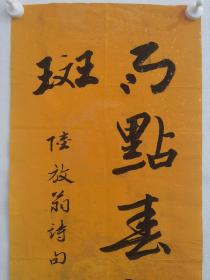 雨點春
斑
陸放翁詩句